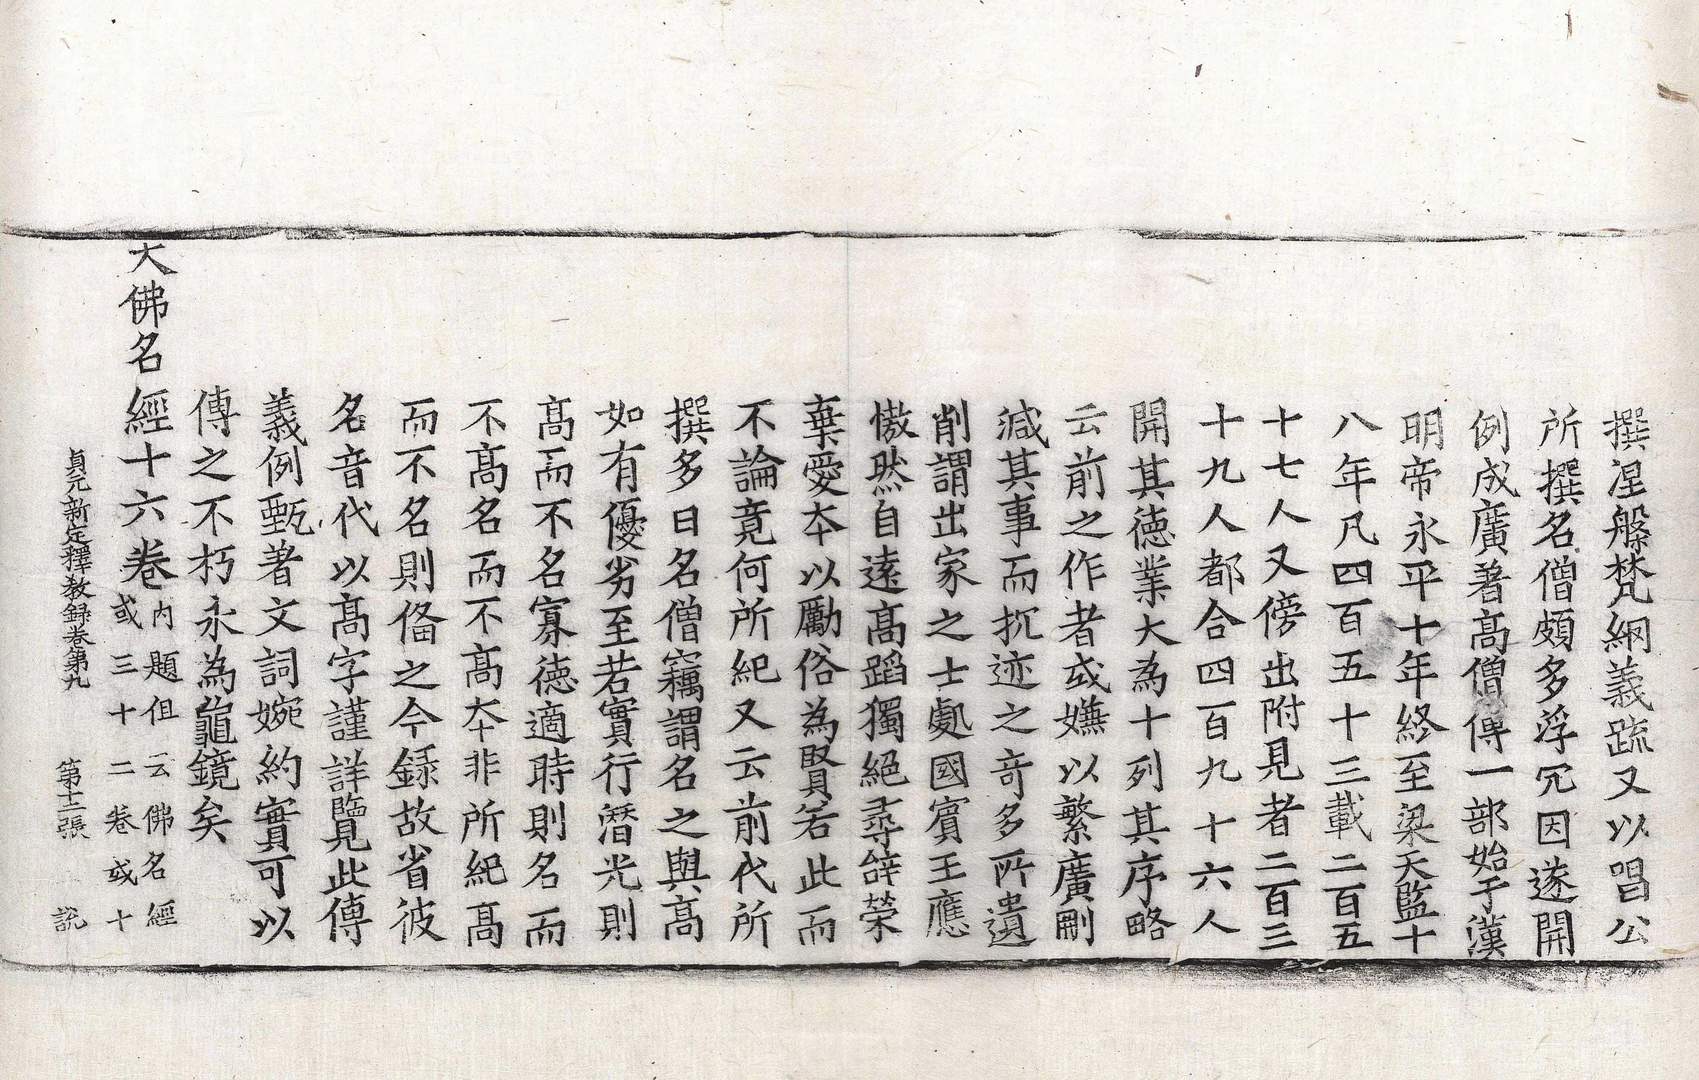 撰涅槃梵網義䟽又以唱公
所撰名僧頗多浮冗因遂開
例成廣著髙僧傳一部始于漢
明帝永平十年終至梁天監十
八年凡四百五十三載二百五
十七人又傍出附見者二百三
十九人都合四百九十六人
開其德業大為十列其序略
云前之作者或嫌以繁廣刪
減其事而抗迹之竒多所遺
削謂出家之士處國賓王應
慠然自遠髙蹈獨絕尋辝榮
棄愛夲以勵俗為賢若此而
不論竟何所紀又云前代所
撰多曰名僧竊謂名之與髙
如有優劣至若實行潛光則
髙而不名寡德適時則名而
不髙名而不髙夲非所紀髙
而不名則俻之今録故省彼
名音代以髙字謹詳覽此傳
義例甄著文詞婉約實可以
傳之不朽永為龜鏡矣
大佛名經十六卷
内題但云佛名經
或三十二卷或十
貞元新定釋教録卷第九 第十二張 說